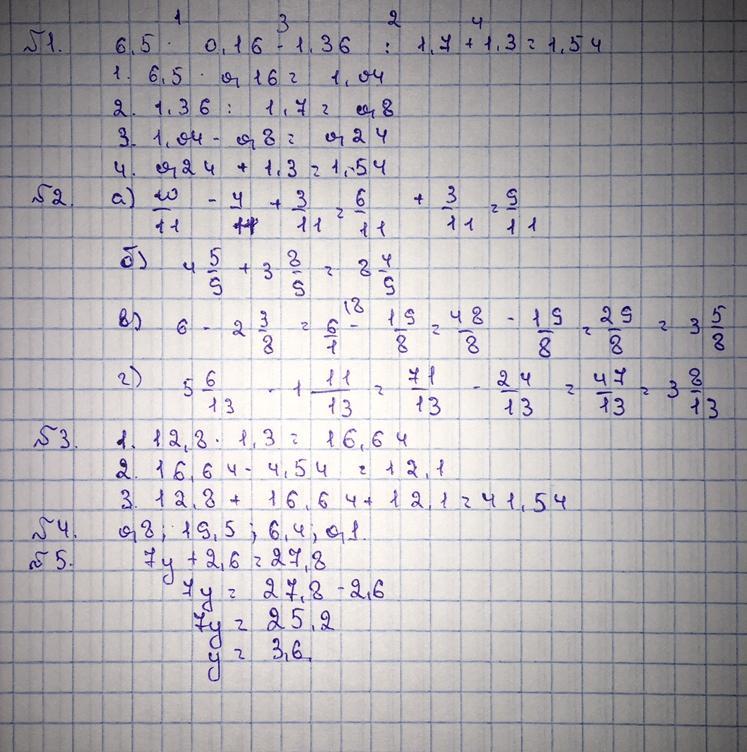 1 3 2 4
№1. 6,5 · 0,16 - 1,36 : 1,7 + 1,3 = 1,54
1. 6,5 · 0,16 = 1,04
2. 1,36 : 1,7 = 0,8
3. 1,04 - 0,8 = 0,24
4. 0,24 + 1,3 = 1,54
№2. а) 10/11 - 4/11 + 3/11 = 6/11 + 3/11 = 9/11
б) 4 5/9 + 3 8/9 = 8 4/9
в) 6 - 2 3/8 = 6/1 \8 - 19/8 = 48/8 - 19/8 = 29/8 = 3 5/8
г) 5 6/13 - 1 11/13 = 71/13 - 24/13 = 47/13 = 3 8/13
№3. 1. 12,8 · 1,3 = 16,64
2. 16,64 - 4,54 = 12,1
3. 12,8 + 16,64 + 12,1 = 41,54
№4. 0,8; 19,5; 6,4; 0,1.
№5. 7y + 2,6 = 27,8
7y = 27,8 - 2,6
7y = 25,2
y = 3,6.